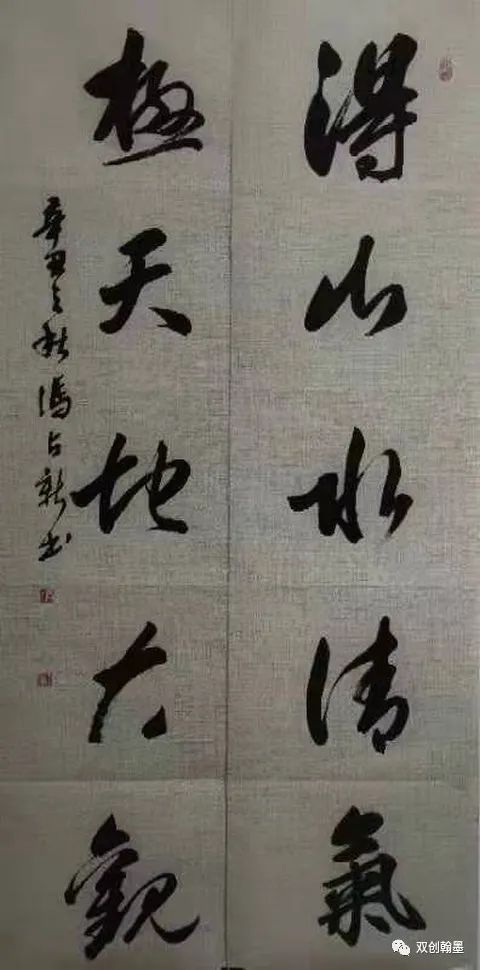 得山水清氣
極天地大觀
辛丑之秋馮占新書
双创翰墨